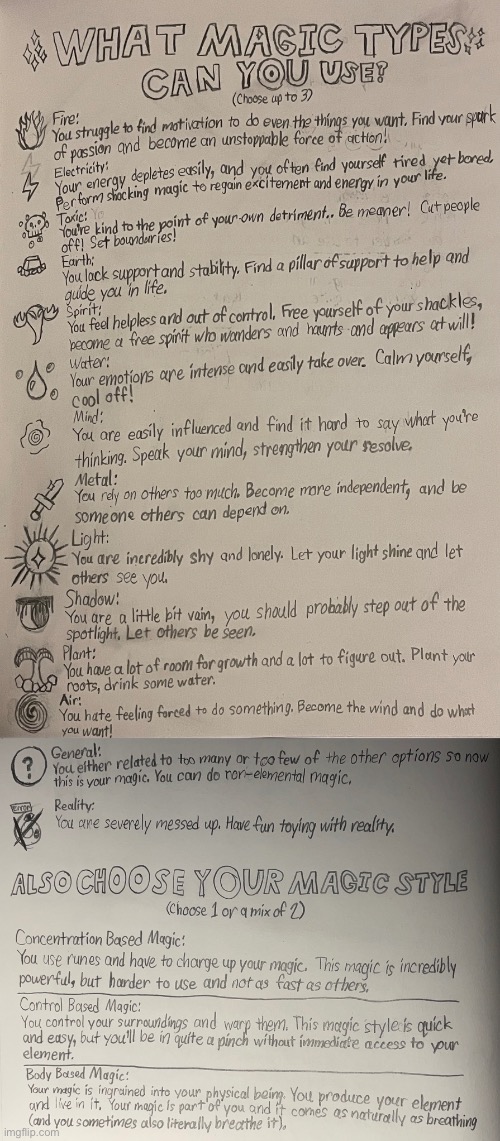 WHAT MAGIC TYPES
CAN YOU USE?
(Choose up to 3)
Fire:
You struggle to find motivation to do even the things you want. Find your spark
of passion and become an unstoppable force of action!
Electricity:
Your energy depletes easily, and you often find yourself tired yet bored.
Perform shocking magic to regain excitement and energy in your life.
Toxic:
You're kind to the point of your own detriment.. Be meaner! Cut people
off! Set boundaries!
Earth:
You lack support and stability. Find a pillar of support to help and
guide you in life.
Spirit:
You feel helpless and out of control. Free yourself of your shackles,
become a free spirit who wanders and haunts and appears at will!
Water:
Your emotions are intense and easily take over. Calm yourself,
cool off!
Mind:
You are easily influenced and find it hard to say what you're
thinking. Speak your mind, strengthen your resolve.
Metal:
You rely on others too much. Become more independent, and be
someone others can depend on.
Light:
You are incredibly shy and lonely. Let your light shine and let
others see you.
Shadow:
You are a little bit vain, you should probably step out of the
spotlight. Let others be seen.
Plant:
You have a lot of room for growth and a lot to figure out. Plant your
roots, drink some water.
Air:
You hate feeling forced to do something. Become the wind and do what
you want!
?
General:
You either related to too many or too few of the other options so now
this is your magic. You can do non-elemental magic.
ERROR
Reality:
You are severely messed up. Have fun toying with reality.
ALSO CHOOSE YOUR MAGIC STYLE
(Choose 1 or a mix of 2)
Concentration Based Magic:
You use runes and have to charge up your magic. This magic is incredibly
powerful, but harder to use and not as fast as others.
Control Based Magic:
You control your surroundings and warp them. This magic style is quick
and easy, but you'll be in quite a pinch without immediate access to your
element.
Body Based Magic:
Your magic is ingrained into your physical being. You produce your element
and live in it. Your magic is part of you and it comes as naturally as breathing
(and you sometimes also literally breathe it).
imgflip.com